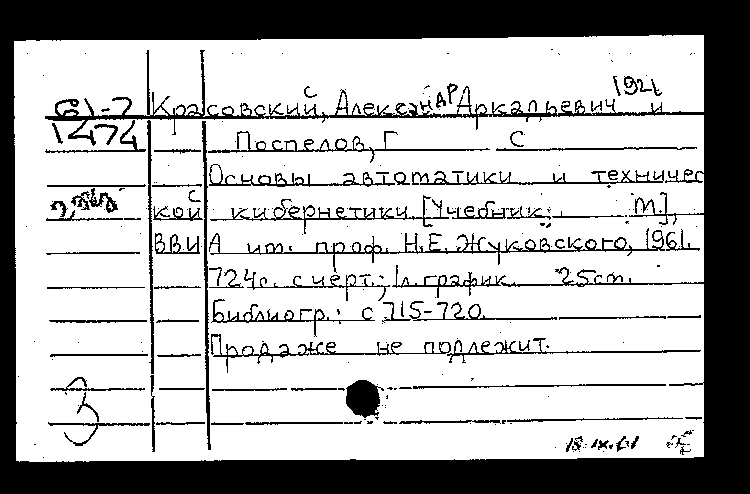 1921
61-7 Красовский, Александр Аркадьевич и
1474 Поспелов, Г С
Основы автоматики и техничес
кой кибернетики. [Учебник: М.],
ВВИА им. проф. Н.Е. Жуковского, 1961.
724с. с черт.; 1 л. график. 25cm.
Библиогр.: с 715-720.
Продаже не подлежит.
3
18.IX.61